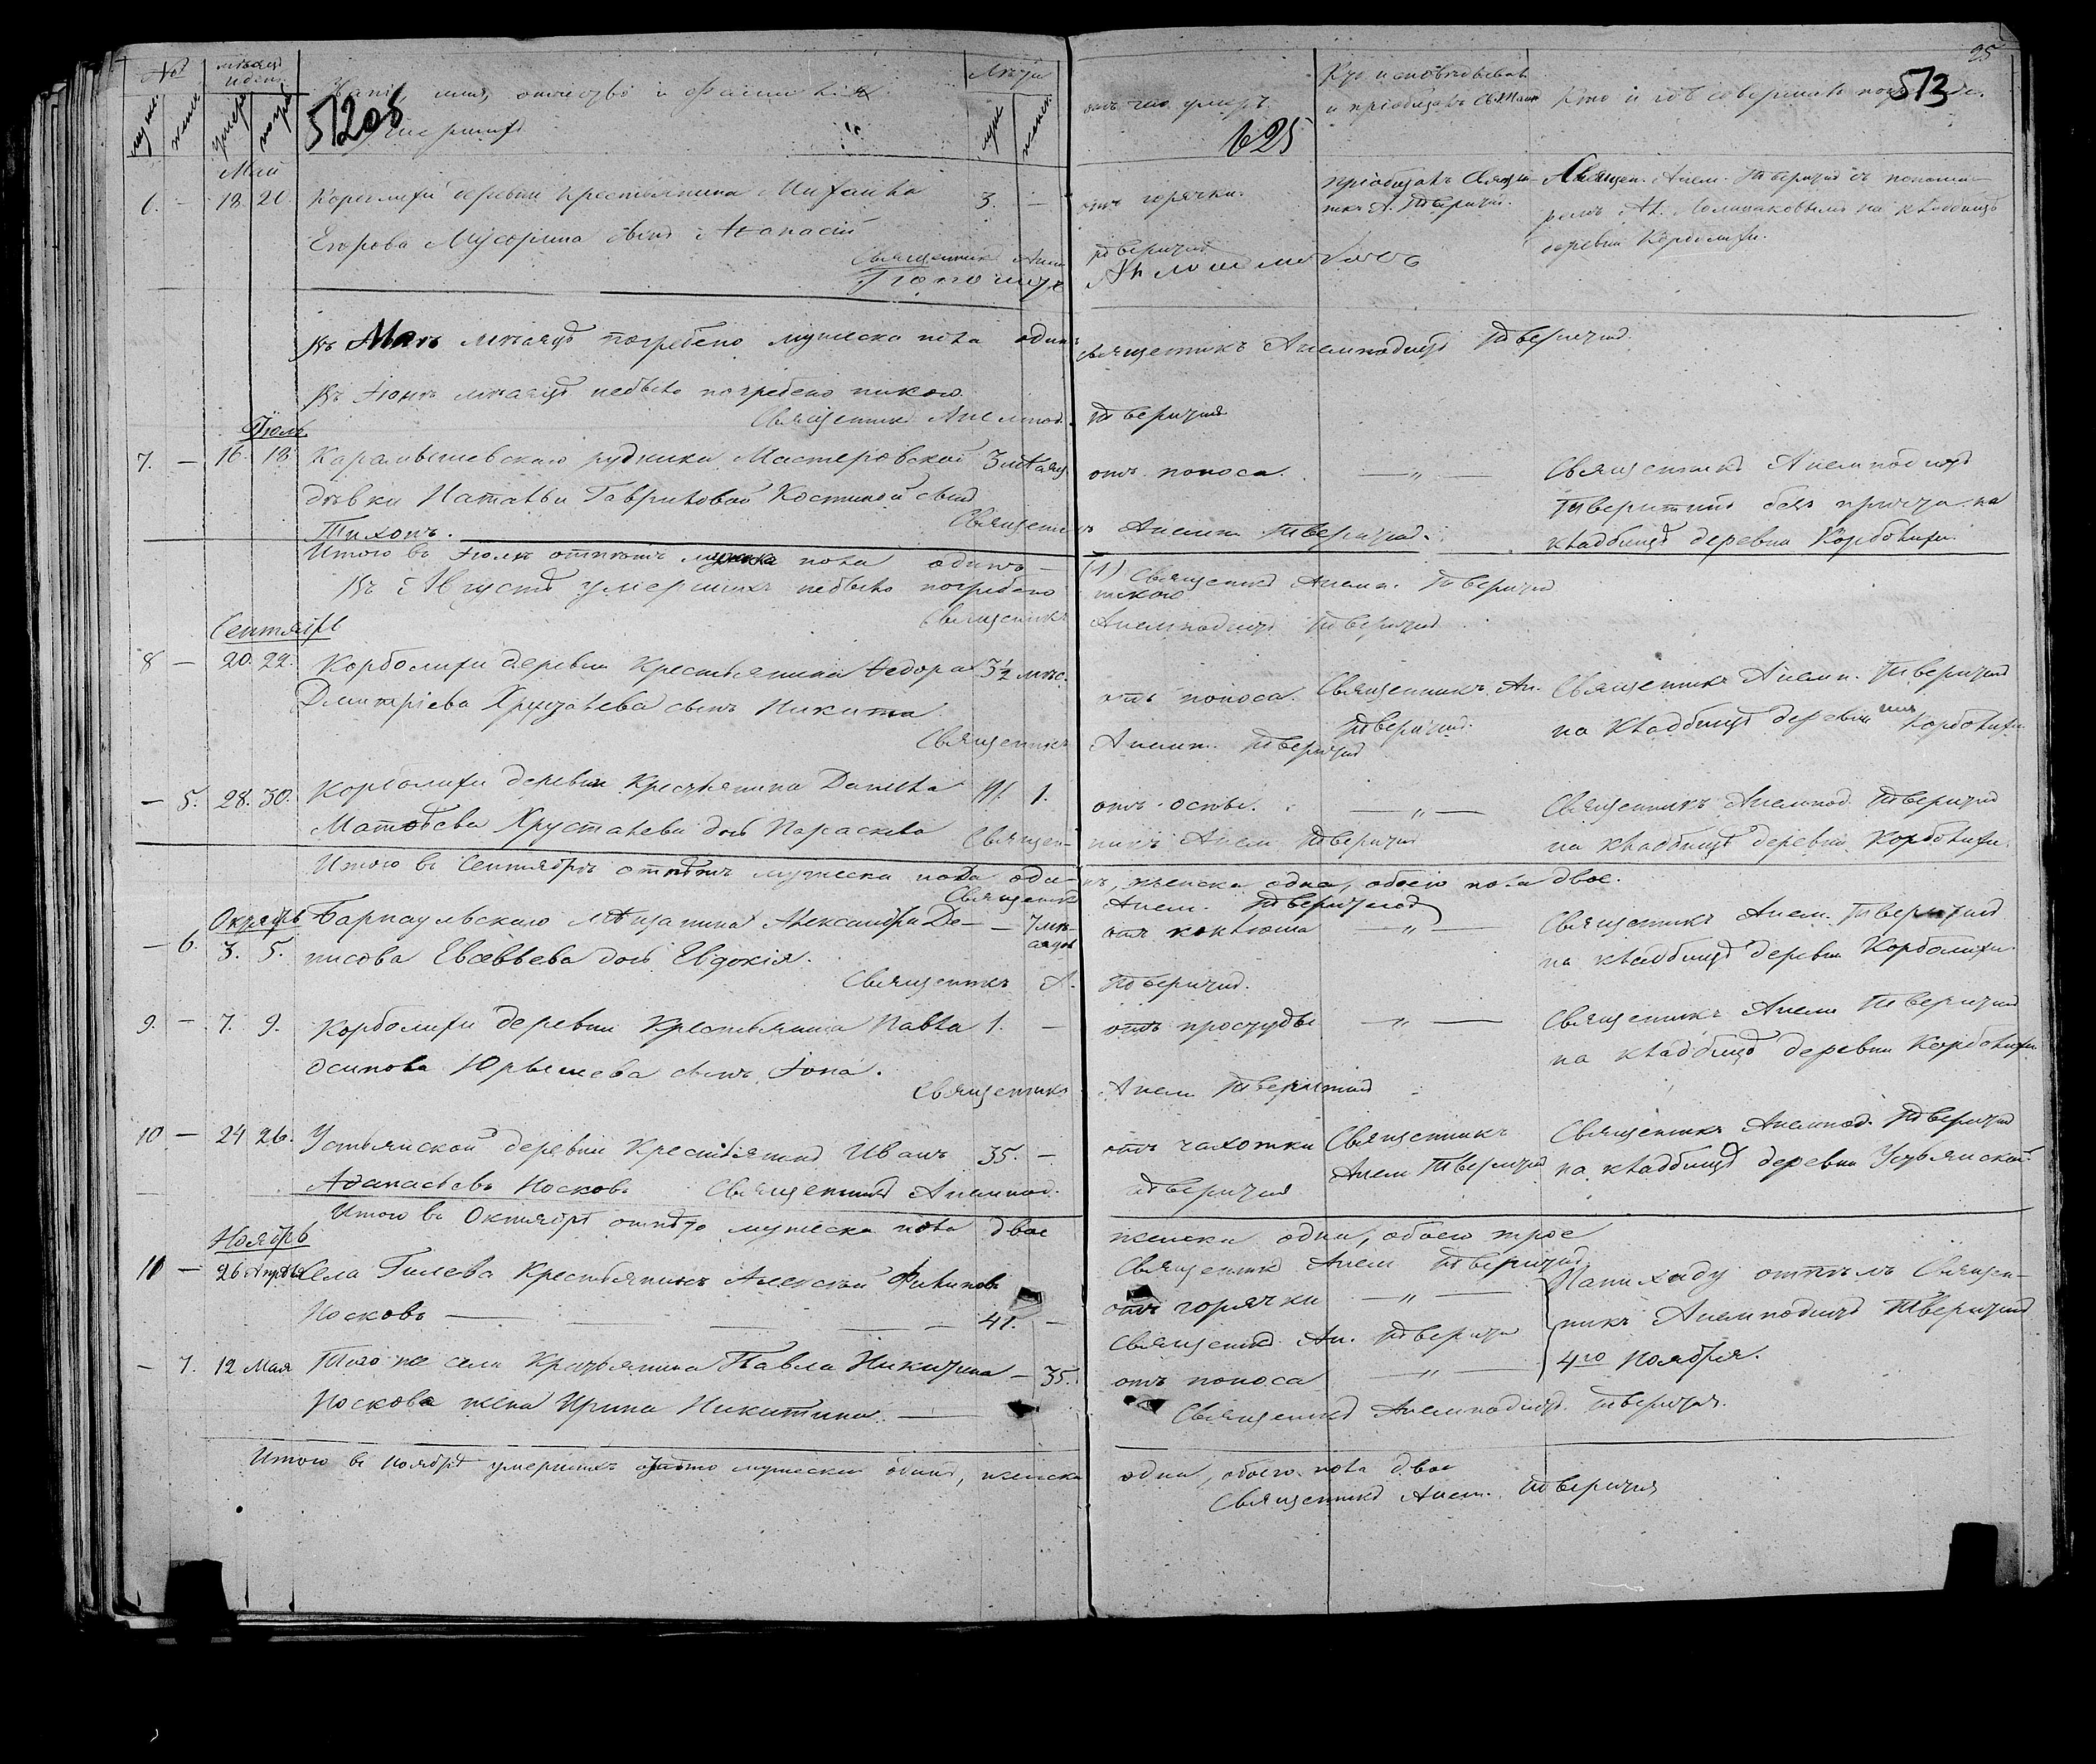 №
мѣсяцъ и день
Званіе, имя, отчество и фамилія
умершихъ
Лѣта
отъ чего умеръ
Кто исповѣдывалъ
и пріобщалъ
Кто и гдѣ совершалъ
25
512об
625
513
муж. жен. умер. погр. муж. женск.
Май
6. — 18. 20. Корболихи деревни крестьянина Михаила 3. — отъ горячки. пріобщалъ Священ- Священ. Анем. Тверитинъ съ понома-
никъ А. Тверитинъ. ремъ Ап. Ломшаковымъ на кладбищѣ
Егорова Мусохина сынъ Аѳанасій деревни Корболихи.
Священникъ Анем. Тверитинъ
Пономарь
Въ Маѣ мѣсяцѣ погребено мужеска пола одинъ Священникъ Анемподистъ Тверитинъ.
Въ Іюнѣ мѣсяцѣ небыло погребено никого
Священникъ Анемпод. Тверитинъ
Іюль
7. — 16. 18. Карамышевскаго рудника Мастеровской 3 мѣсяц. отъ поноса. — „ — Священникъ Анемподистъ
дѣвки Натальи Гавриловой Костиной сынъ Тверитинъ безъ причта на
Тихонъ. Священникъ Анемп. Тверитинъ. кладбищѣ деревни Корболихи.
Итого въ Іюлѣ отпѣтъ мужска пола одинъ — (1) Священникъ Анемп. Тверитинъ
Въ Августѣ умершихъ небыло погребено никого
Священникъ Анемподистъ Тверитинъ
Сентябрь
8 — 20. 22. Корболихи деревни Крестьянина Ѳедора 3½ мѣс. отъ поноса. Священникъ Ан. Священникъ Анемп. Тверитинъ
Дмитріева Хрусталева сынъ Никита. Тверитинъ. на кладбищѣ деревни Корболихи
Священникъ Анемп. Тверитинъ
— 5. 28. 30. Корболихи деревни Крестьянина Данила 1. отъ оспы. — „ — Священникъ Анемпод. Тверитинъ
Матѳѣева Хрусталева дочь Параскева Священ- никъ Анем. Тверитинъ на кладбищѣ деревни Корболихи.
Итого въ Сентябрѣ отпѣтъ мужеска пола оди- нъ, женска одна, обоего пола двое.
Священникъ Анем. Тверитинъ
Октябрь
— 6. 3. 5. Барнаульскаго мѣщанина Александра Де- — 7 мѣ- сяцев отъ коклюша — „ — Священникъ Анем. Тверитинъ
нисова Евсевьева дочь Евдокія. на кладбищѣ деревни Корболихи.
Священникъ А. Тверитинъ.
9. — 7. 9. Корболихи деревни Крестьянина Павла 1. — отъ простуды — „ — Священникъ Анем. Тверитинъ
Осипова Юрышева сынъ Іона. на кладбищѣ деревни Корболихи
Священникъ Анем. Тверитинъ
10 — 24 26. Устьянской деревни Крестьянинъ Иванъ 35. — отъ чахотки Священникъ Священникъ Анемпод. Тверитинъ
Аѳанасьевъ Носковъ Священникъ Анемпод. Тверитинъ Анем. Тверитинъ на кладбищѣ деревни Устьянской
Итого въ Октябрѣ отпѣто мужеска пола двое женска одна, обоего трое
Священникъ Анем. Тверитинъ
Ноябрь
11 — 26 Апрѣля Села Гилева Крестьянинъ Алексѣй Филиповъ отъ горячки — „ — Панихиду отпѣлъ Священ-
Носковъ — 41. — Священникъ Ан. Тверитинъ никъ Анемподистъ Тверитинъ
— 7. 12 Мая Того же села Крестьянина Павла Никитина — 35. отъ поноса — „ — 4го Ноября.
Носкова жена Ирина Никитина. — Священникъ Анемподистъ Тверитинъ.
Итого въ Ноябрѣ умершихъ отпѣто мужеска одинъ, женска одна, обоего пола двое
Священникъ Анем. Тверитинъ